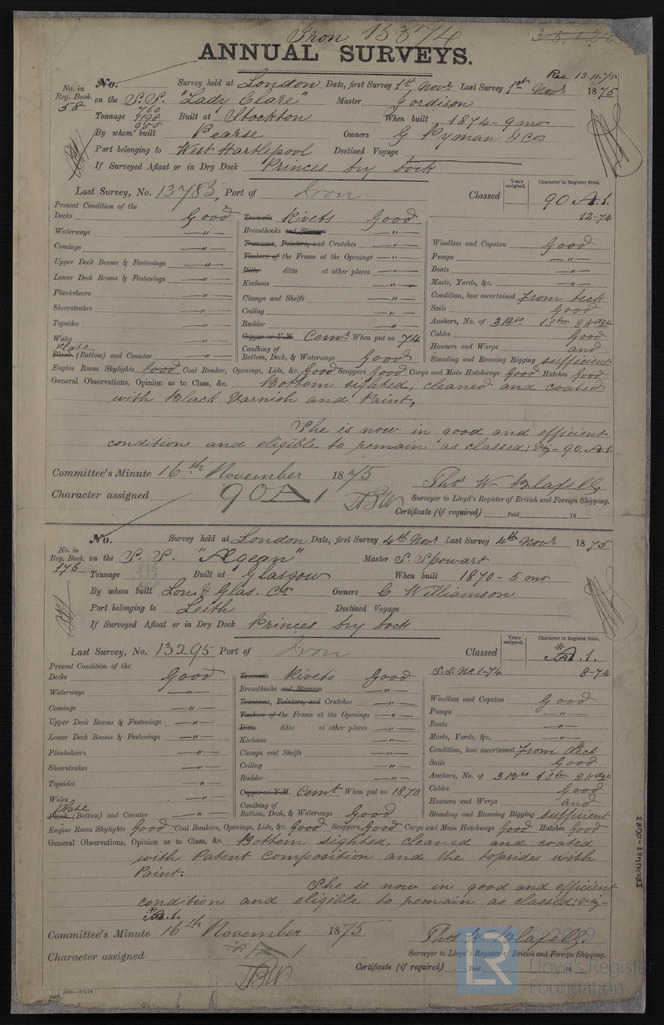 Iron 13374
ANNUAL SURVEYS.
Rec 13.11.75
No. Survey held at London Date, first Survey 1st Novr Last Survey 1st Novr 1875
No. in Reg. Book. 58 on the S.S. "Lady Clare" Master Gordison
Tonnage Built at Stockton When built 1874 - 9 mo
By whom built Pearse Owners G Pyman & Co
Port belonging to West Hartlepool Destined Voyage
If Surveyed Afloat or in Dry Dock Princes Dry Dock
Last Survey, No. 13783, Port of Iron Classed Years assigned. Character in Register Book. 90 A.1.
12-74
Present Condition of the
Decks Good Rivets Good
Waterways " Breasthooks and Stemson "
Comings " Transoms, Pointers, and Crutches " Windlass and Capstan Good
Timbers of the Frame at the Openings " Pumps "
Upper Deck Beams & Fastenings " Ditto ditto at other places " Boats "
Lower Deck Beams & Fastenings " Keelsons " Masts, Yards, &c. "
Planksheers " Clamps and Shelfs " Condition, how ascertained From deck
Sheerstrakes " Ceiling " Sails Good
Topsides " Rudder " Anchors, No. of 3 Brs 1 St 2 Kedge
Wales " Copper or Y.M. Cemt When put on 74 Cables Good
Plank (Bottom) and Counter " Caulking of Bottom, Deck, & Waterways Good Hawsers and Warps and
Plate Standing and Running Rigging sufficient
Engine Room Skylights Good Coal Bunker, Openings, Lids, &c. Good Scuppers Good Cargo and Main Hatchways Good Hatches Good
General Observations, Opinion as to Class, &c. Bottom sighted, cleaned and coated
with Black Varnish and Paint,
She is now in good and efficient
condition and eligible to remain as classed; viz- 90.A.1.
Committee's Minute 16th November 1875 Thos W Blafell
Character assigned 90A1 Surveyor to Lloyd's Register of British and Foreign Shipping.
Certificate (if required) Paid 18
No. Survey held at London Date, first Survey 4th Novr Last Survey 4th Novr 1875
No. in Reg. Book. 176 on the S.S. "Aegean" Master S. Spowart
Tonnage Built at Glasgow When built 1870 - 5 mo
By whom built Lon. & Glas. Co. Owners C Williamson
Port belonging to Leith Destined Voyage
If Surveyed Afloat or in Dry Dock Princes Dry Dock
Last Survey, No. 13295 Port of Iron Classed Years assigned. Character in Register Book. A.1.
S.S. No 1-74 8-74
Present Condition of the
Decks Good Rivets Good
Waterways " Breasthooks and Stemson "
Comings " Transoms, Pointers, and Crutches " Windlass and Capstan Good
Timbers of the Frame at the Openings " Pumps "
Upper Deck Beams & Fastenings " Ditto ditto at other places " Boats "
Lower Deck Beams & Fastenings " Keelsons " Masts, Yards, &c. "
Planksheers " Clamps and Shelfs " Condition, how ascertained From Deck
Sheerstrakes " Ceiling " Sails Good
Topsides " Rudder " Anchors, No. of 3 Brs 1 St 2 Kedge
Wales " Copper or Y.M. Cemt When put on 1870 Cables Good
Plate (Bottom) and Counter " Caulking of Bottom, Deck, & Waterways Good Hawsers and Warps and
Standing and Running Rigging sufficient
Engine Room Skylights Good Coal Bunkers, Openings, Lids, &c. Good Scuppers Good Cargo and Main Hatchways Good Hatches Good
General Observations, Opinion as to Class, &c. Bottom sighted, cleaned and coated
with Patent Composition and the topsides with
Paint.
She is now in good and efficient
condition and eligible to remain as classed; viz-
A.1.
Committee's Minute 16th November 1875 Thos W Blafell
Character assigned Surveyor to Lloyd's Register of British and Foreign Shipping.
Certificate (if required) Paid 18
LR Lloyd's Register
Foundation